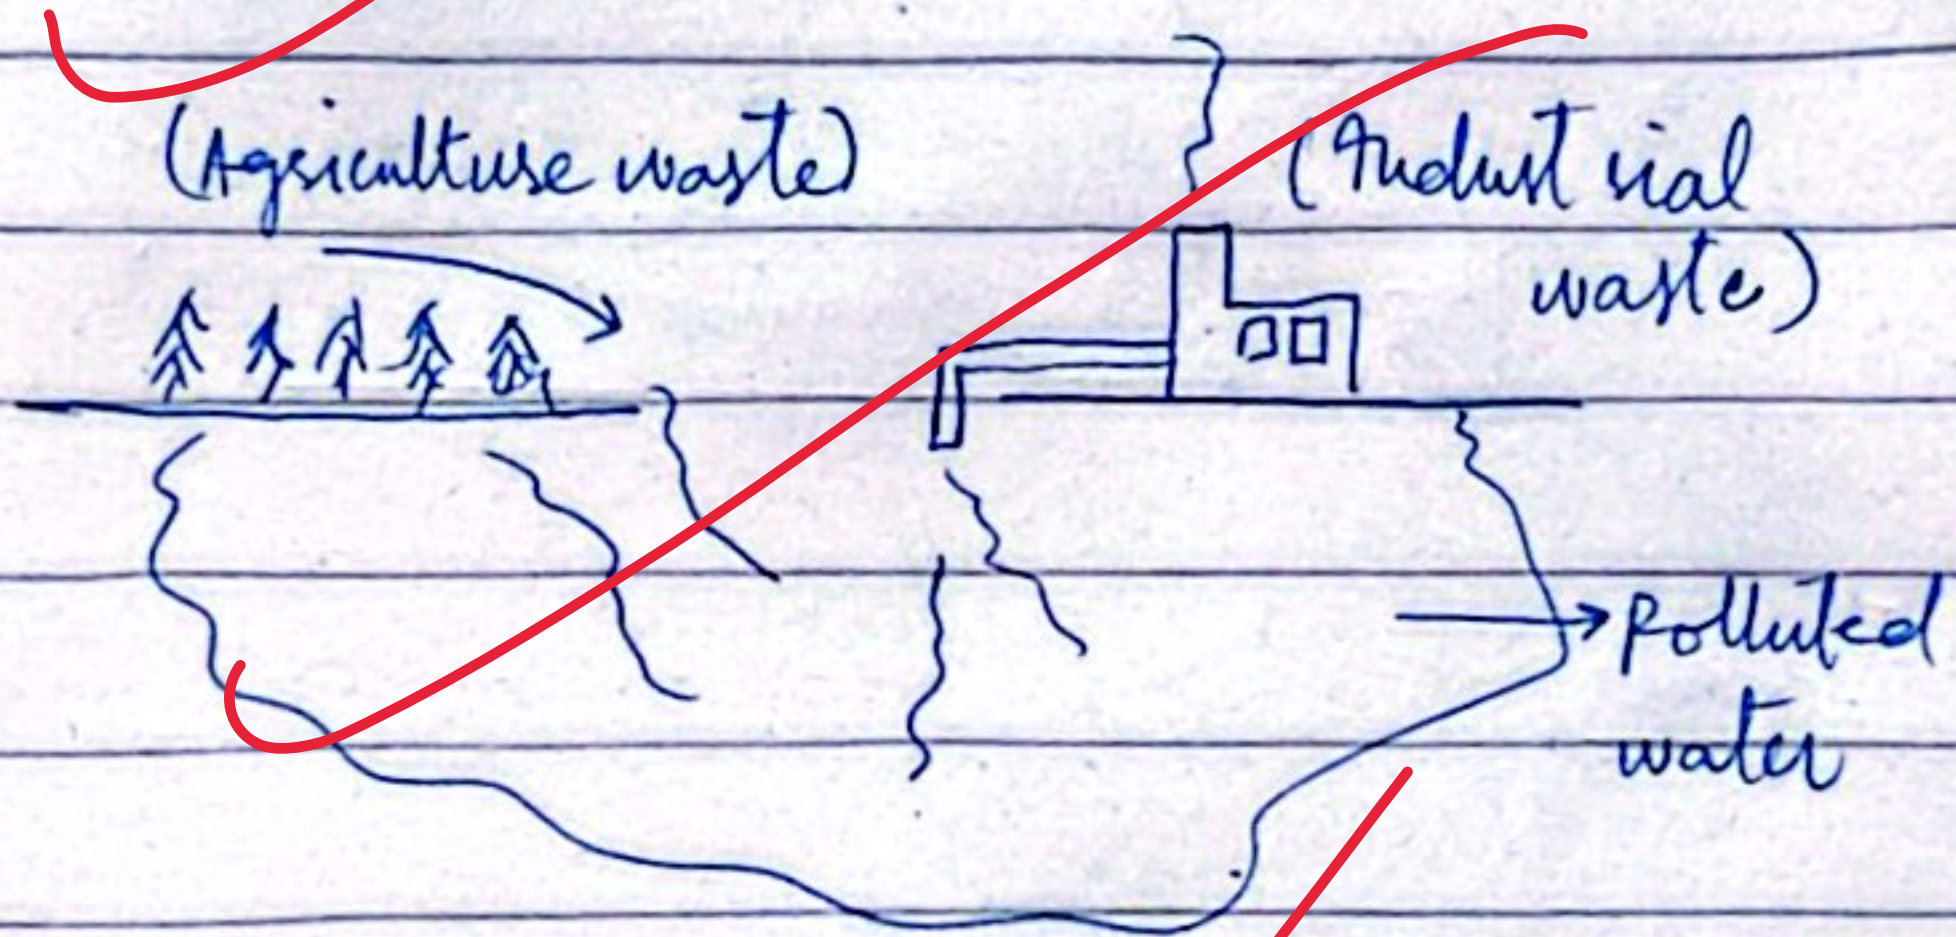 (Agriculture waste)
(Industrial
waste)
Polluted
water